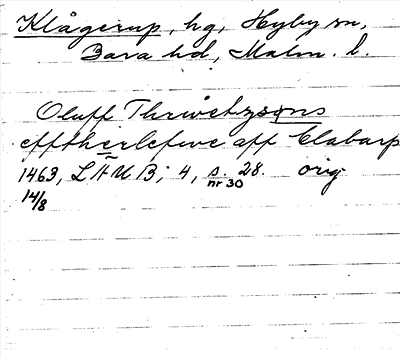 Klågerup, hg, Hyby sn,
Bara hd, Malm. l.
Oluff Thrwetzsøns
efftherlefwe aff Clabarp
1463, LÄUB; 4, s. 28. orig
14/8 nr 30